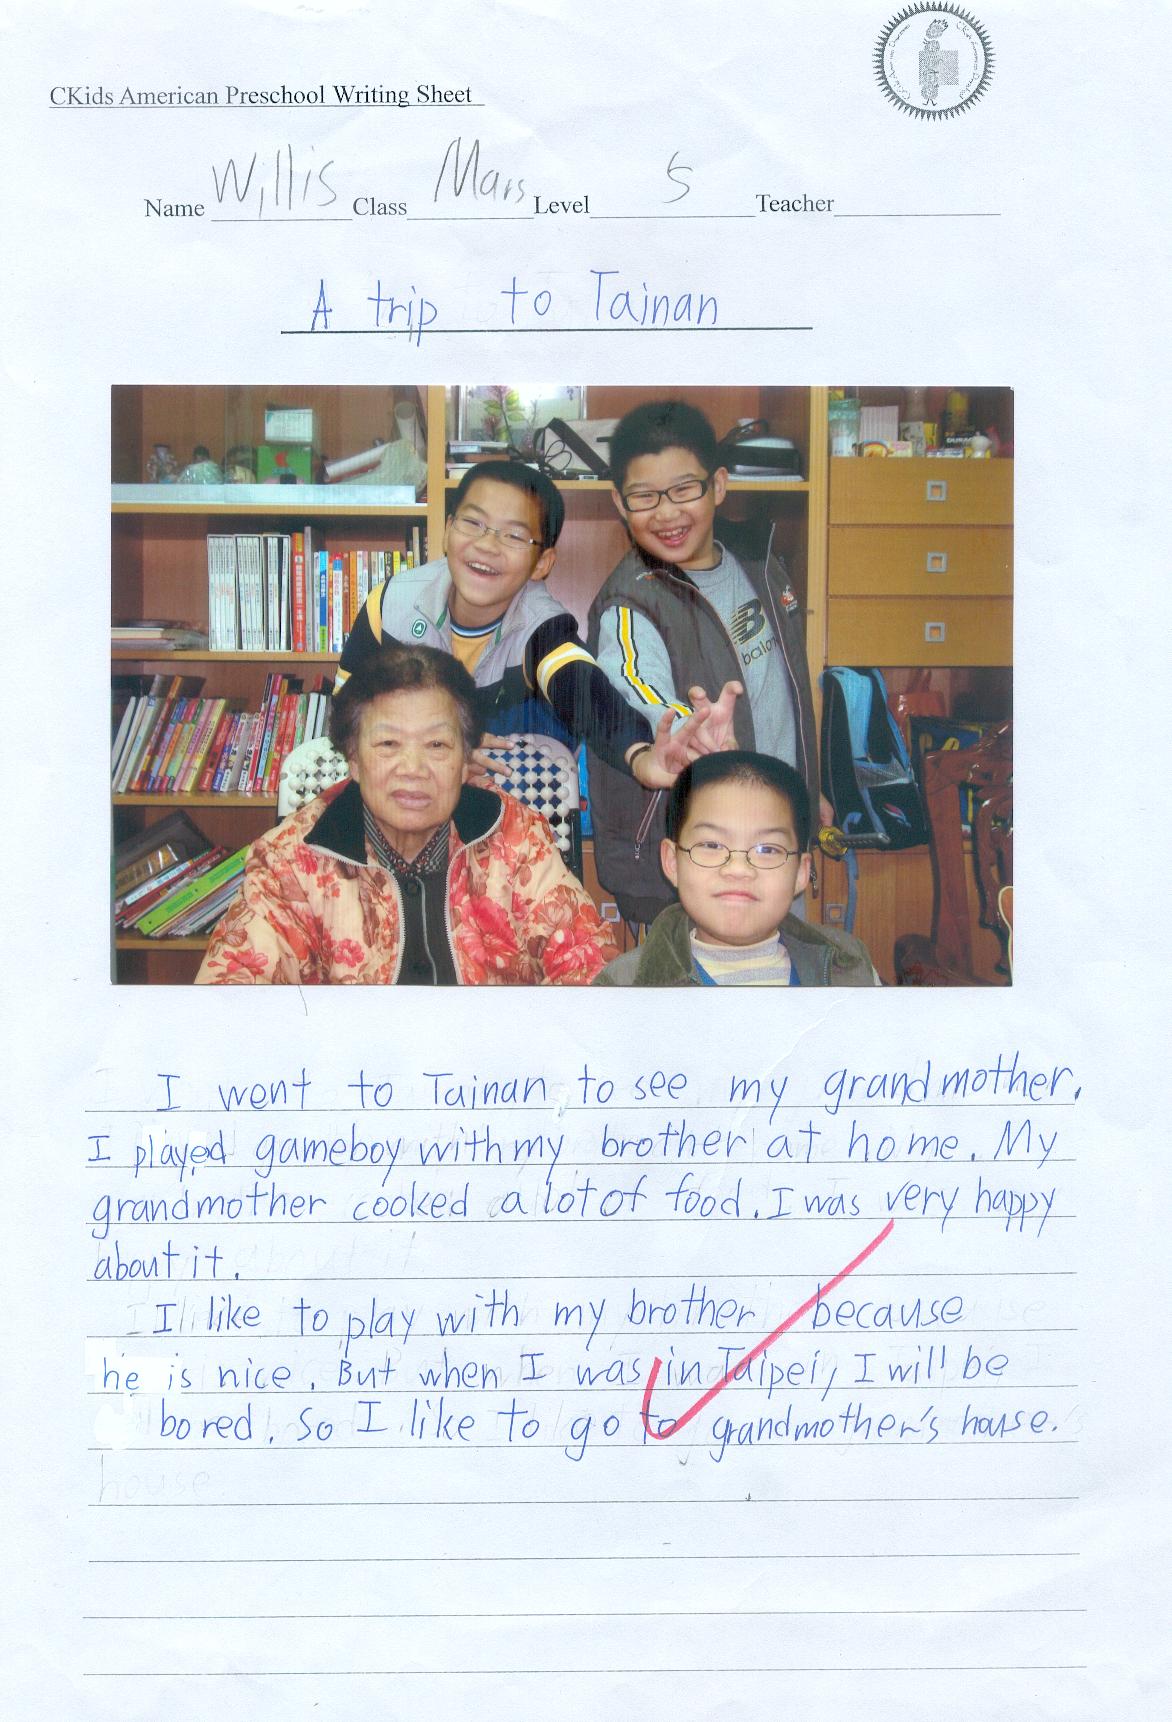 CKids American Preschool Writing Sheet
Name Willis Class Mars Level 5 Teacher
A trip to Tainan
new balance
I went to Tainan to see my grandmother.
I played gameboy with my brother at home. My
grandmother cooked a lot of food. I was very happy
about it.
I like to play with my brother because
he is nice. But when I was in Taipei, I will be
bored. So I like to go to grandmother's house.
house.